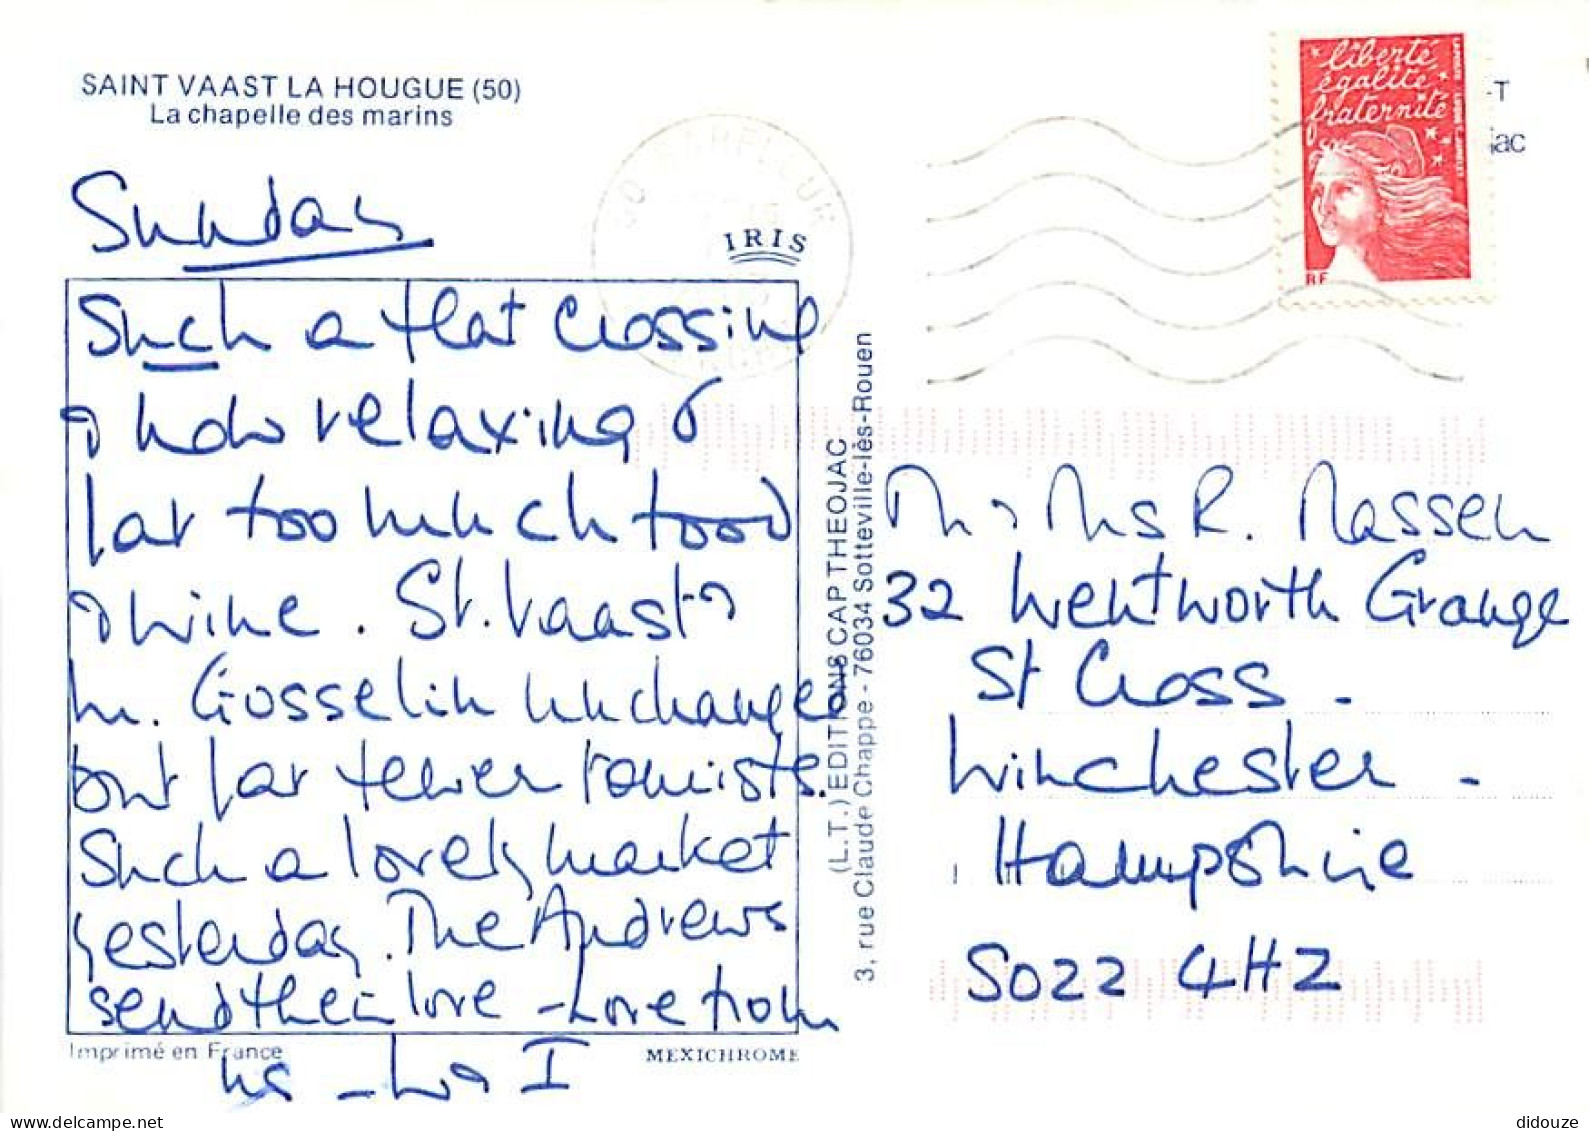 SAINT VAAST LA HOUGUE (50)
La chapelle des marins
liberté
égalité
fraternité
RF
-T
iac
50 BARFLEUR
IRIS
Sunday
Such a flat crossing
& how relaxing &
far too much food
& wine. St. Vaast &
M. Gosselin unchanged
but far fewer tourists.
Such a lovely market
yesterday. The Andrews
send their love - Love from
us -
(L.T.) EDITIONS CAP THEOJAC
3, rue Claude Chappe - 76034 Sotteville-lès-Rouen
M & Mrs R.
32 Wentworth Grange
St Cross -
Winchester -
Hampshire
SO22 4HZ
Imprimé en France
MEXICHROME
didouze